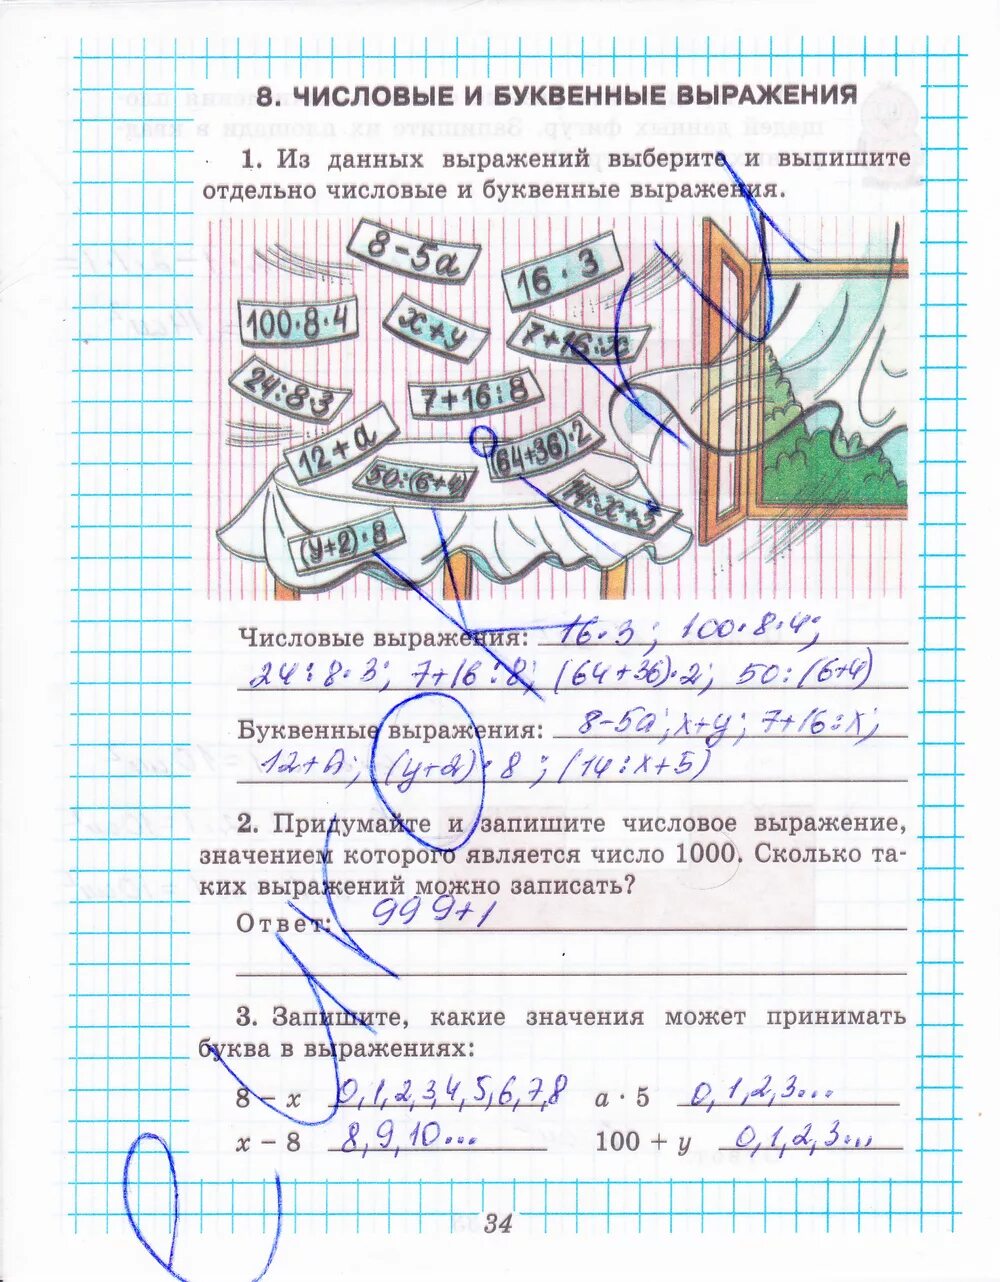 8. ЧИСЛОВЫЕ И БУКВЕННЫЕ ВЫРАЖЕНИЯ
1. Из данных выражений выберите и выпишите
отдельно числовые и буквенные выражения.
8-5a
16·3
100·8·4
x+y
7+16:x
24:8·3
7+16:8
12+a
50:(6+4)
(64+36)·2
14:x+5
(y+2)·8
Числовые выражения: 16·3; 100·8·4;
24:8·3; 7+16:8; (64+36)·2; 50:(6+4)
Буквенные выражения: 8-5a; x+y; 7+16:x;
12+A; (y+2)·8; (14:x+5)
2. Придумайте и запишите числовое выражение,
значением которого является число 1000. Сколько та-
ких выражений можно записать?
Ответ: 999+1
3. Запишите, какие значения может принимать
буква в выражениях:
8 − x 0,1,2,3,4,5,6,7,8 a · 5 0,1,2,3...
x − 8 8,9,10... 100 + y 0,1,2,3...
34